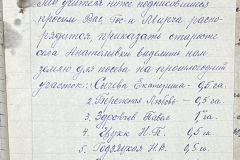 учителя ниже подписавшиеся
просим Вас, Г-н Мирча распо-
рядится приказать старосте
села Анатольевки выделить нам
землю для посева на прошлогодний
участок: Сычева Екатерина - 0,5 га.
2 Береженая Любовь - 0,5 га
3 Здровчев Павел 1 га
4 Звукк Н. П. - 0,5 га.
5. Годзяцкая Н.В. - 0,5 га.